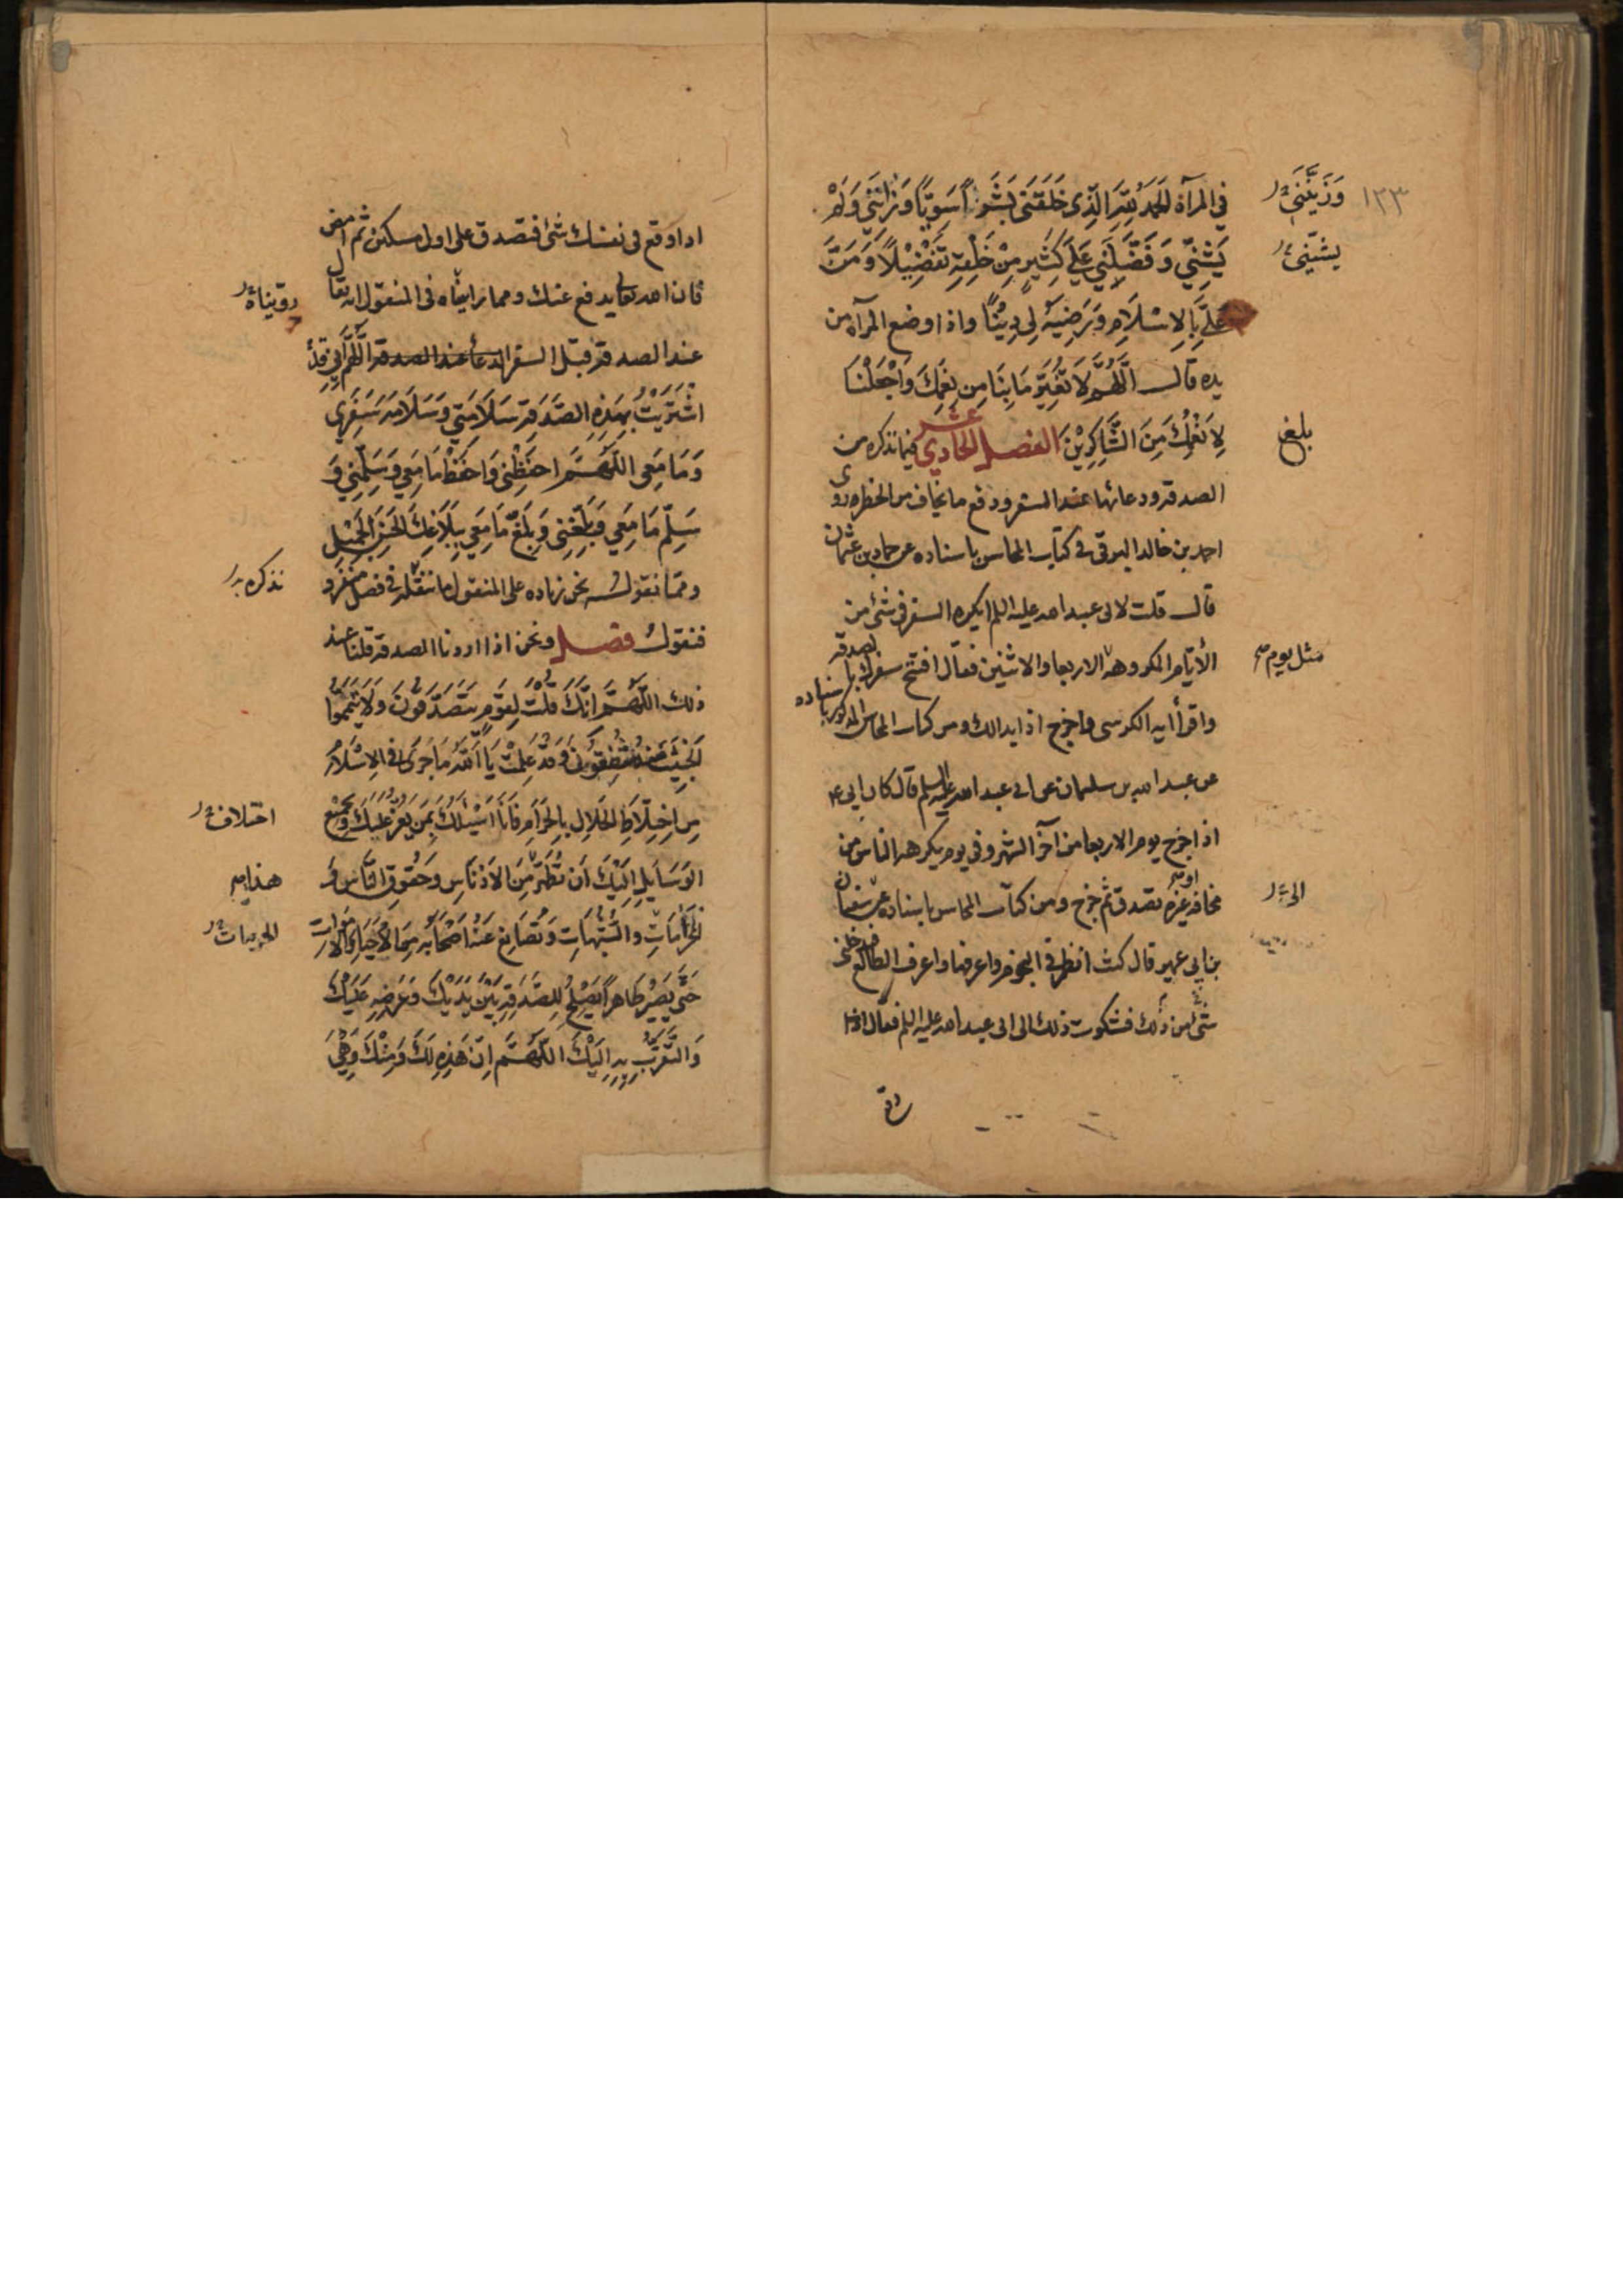 ١٣٣
في المرآة الحمد لله الذي خلقني بشرا سويا وزانني ولم
وزينني
يشني وفضلني على كثير من خلقه تفضيلا ومن
يشينني
علي بالاسلام ورضيه لي دينا واذا وضع المرآه من
يده قال اللهم لا تغير ما بنا من نعمك واجعلنا
لانعمك من الشاكرين الفصل الحادي عشر فيما نذكره من
بلغ
الصدقه ودعائها عند السفر ودفع ما يخاف من الخطر روى
احمد بن خالد البرقى فى كتاب المحاسن باسناده عن حماد بن عثمان
قال قلت لابى عبد الله عليه السلم ايكره السفر فى شئ من
الأيام المكروهه الاربعا والاثنين فقال افتتح سفرك بالصدقه
مثل يوم
واقرأ ايه الكرسى واخرج اذا بدا لك ومن كتاب المحاسن المذكور باسناده
عن عبد الله بن سليمان عن ابى عبد الله عليه السلم قال كان ابى
اذا خرج يوم الاربعا من آخر الشهر وفي يوم يكرهه الناس من
مخافه غيره تصدق ثم خرج ومن كتاب المحاسن باسناده عن سفيان
او
بن ابى عمير قال كنت انظر فى النجوم واعرفها واعرف الطالع فيدخلنى
شئ من ذلك فشكوت ذلك الى ابى عبد الله عليه السلم فقال اذا
اذا وقع فى نفسك شئ فتصدق على اول مسكين ثم امض
فان الله تعالى يدفع عنك ومما رايناه فى المنقول انه يقال
رويناه
عند الصدقه قبل السفر الدعا عند الصدقه اللهم اني قد
اشتريت بهذه الصدقه سلامتي وسلامه سفري
وما معي اللهم احفظني واحفظ ما معي وسلمني و
سلم ما معي وبلغني وبلغ ما معي ببلاغك الحسن الجميل
ومما نقوله نحن زياده على المنقول ما ننقله فى فصل منفرد
نذكره
فنقول فصل ونحن اذا اردنا الصدقه قلنا عند
ذلك اللهم انك قلت لقوم يتصدقون ولا تيمموا
الخبيث منه تنفقون وقد علمت يا الله ما جرى فى الاسلام
من اختلاط الحلال بالحرام فانا اسئلك بمن يعز عليك وبجميع
اختلاف
الوسايل اليك ان تطهر من الادناس وحقوق الناس و
هذا
الحرامات والشبهات وتصانع عنه اصحابه من الاحياء والاموات
حتى يصير طاهرا يصلح للصدقه بين يديك وعرضه عليك
والتقرب به اليك اللهم ان هذه لك ومنك وهي